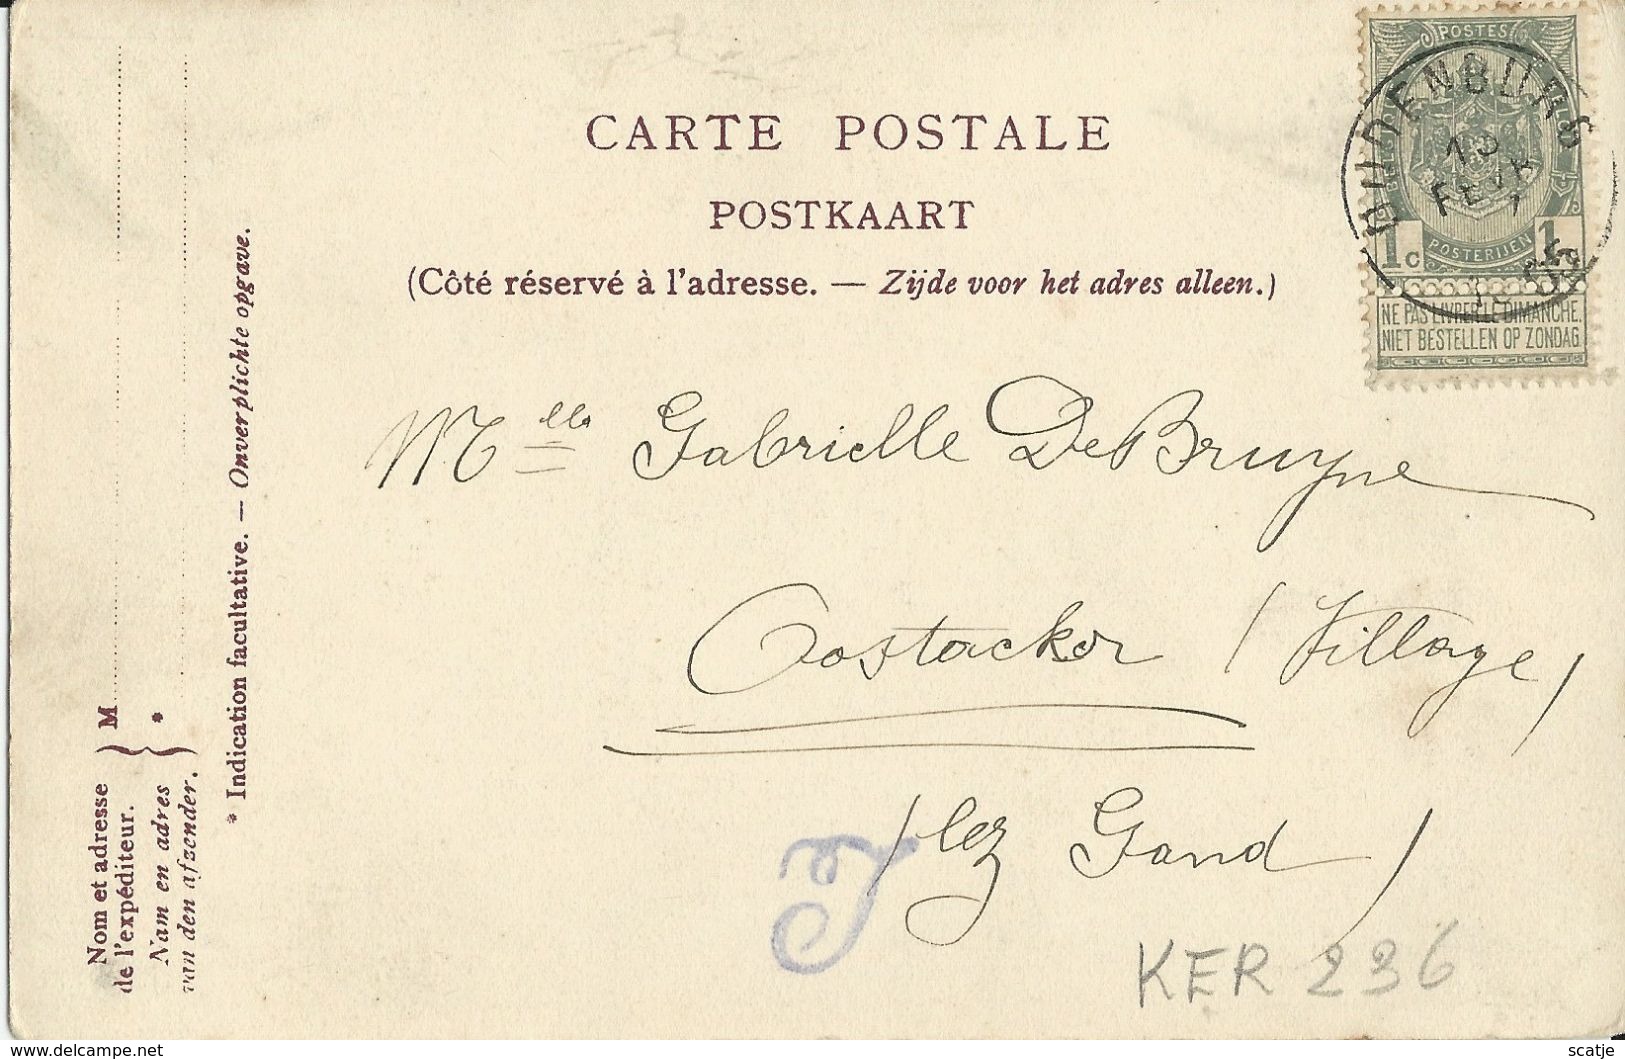 CARTE POSTALE
POSTKAART
(Côté réservé à l'adresse. — Zijde voor het adres alleen.)
POSTES
1c POSTERIJEN 1c
NE PAS LIVRER LE DIMANCHE.
NIET BESTELLEN OP ZONDAG
OUDENBURG
13
FEVR
1905
Mlle Gabrielle DeBruyne
Oostacker (Village)
(lez Gand)
T
KER 236
Nom et adresse
de l'expéditeur.
Nam en adres
van den afzender.
M
*
* Indication facultative. — Onverplichte opgave.
www.delcampe.net
scatje